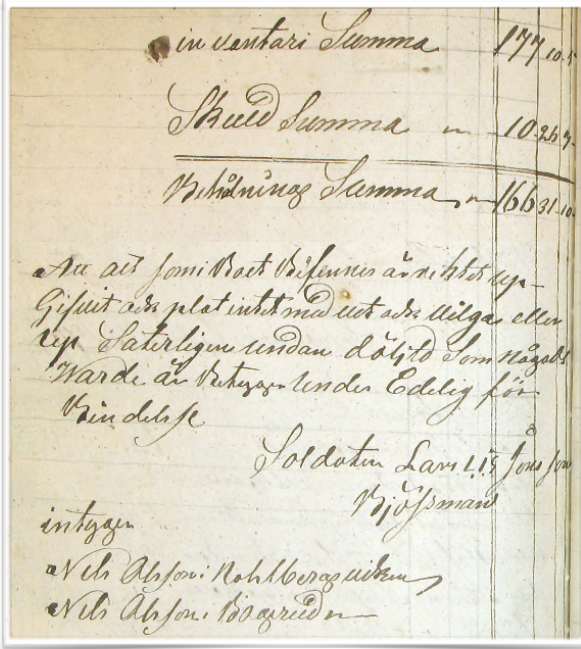 inventari Summa 177 10.5
Skuld Summa 10 26 7
Behålnings Summa 166 31 10
Att alt som i Boet Befinnes är riktet up-
Gifvit och plat intet med vet och vilga eller
up Såterligen undan döljtd Som någodt
Warde är Betygar under Edelig för
Bindelse
Soldaten Lars L.I.S Jönsson
Björsman
intygar
Nels Olsson i
Nels Olsson i